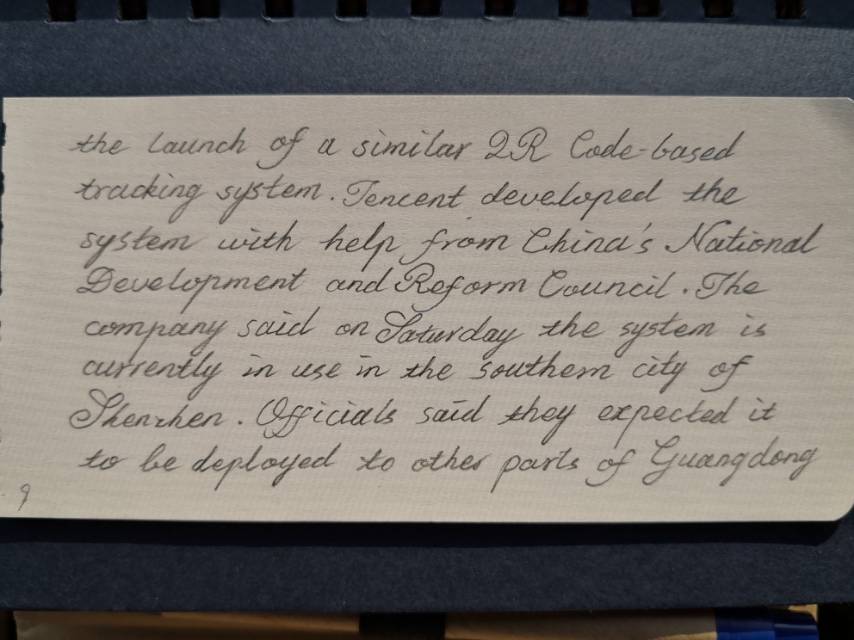 the launch of a similar QR Code-based
tracking system. Tencent developed the
system with help from China's National
Development and Reform Council. The
company said on Saturday the system is
currently in use in the southern city of
Shenzhen. Officials said they expected it
to be deployed to other parts of Guangdong
9